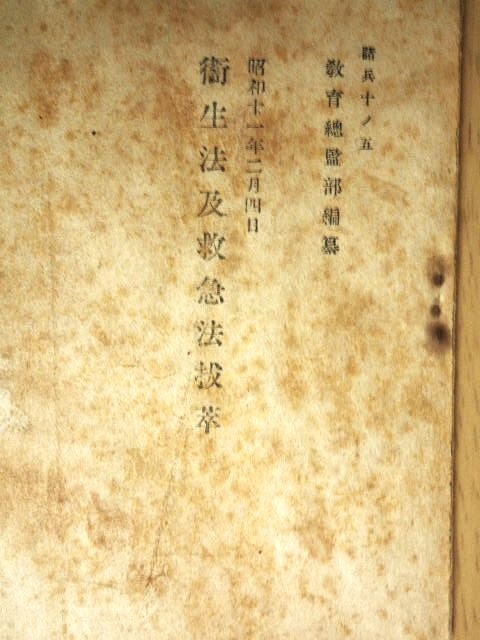 諸兵十ノ五
教育總監部編纂
昭和十一年二月四日
衞生法及救急法拔萃